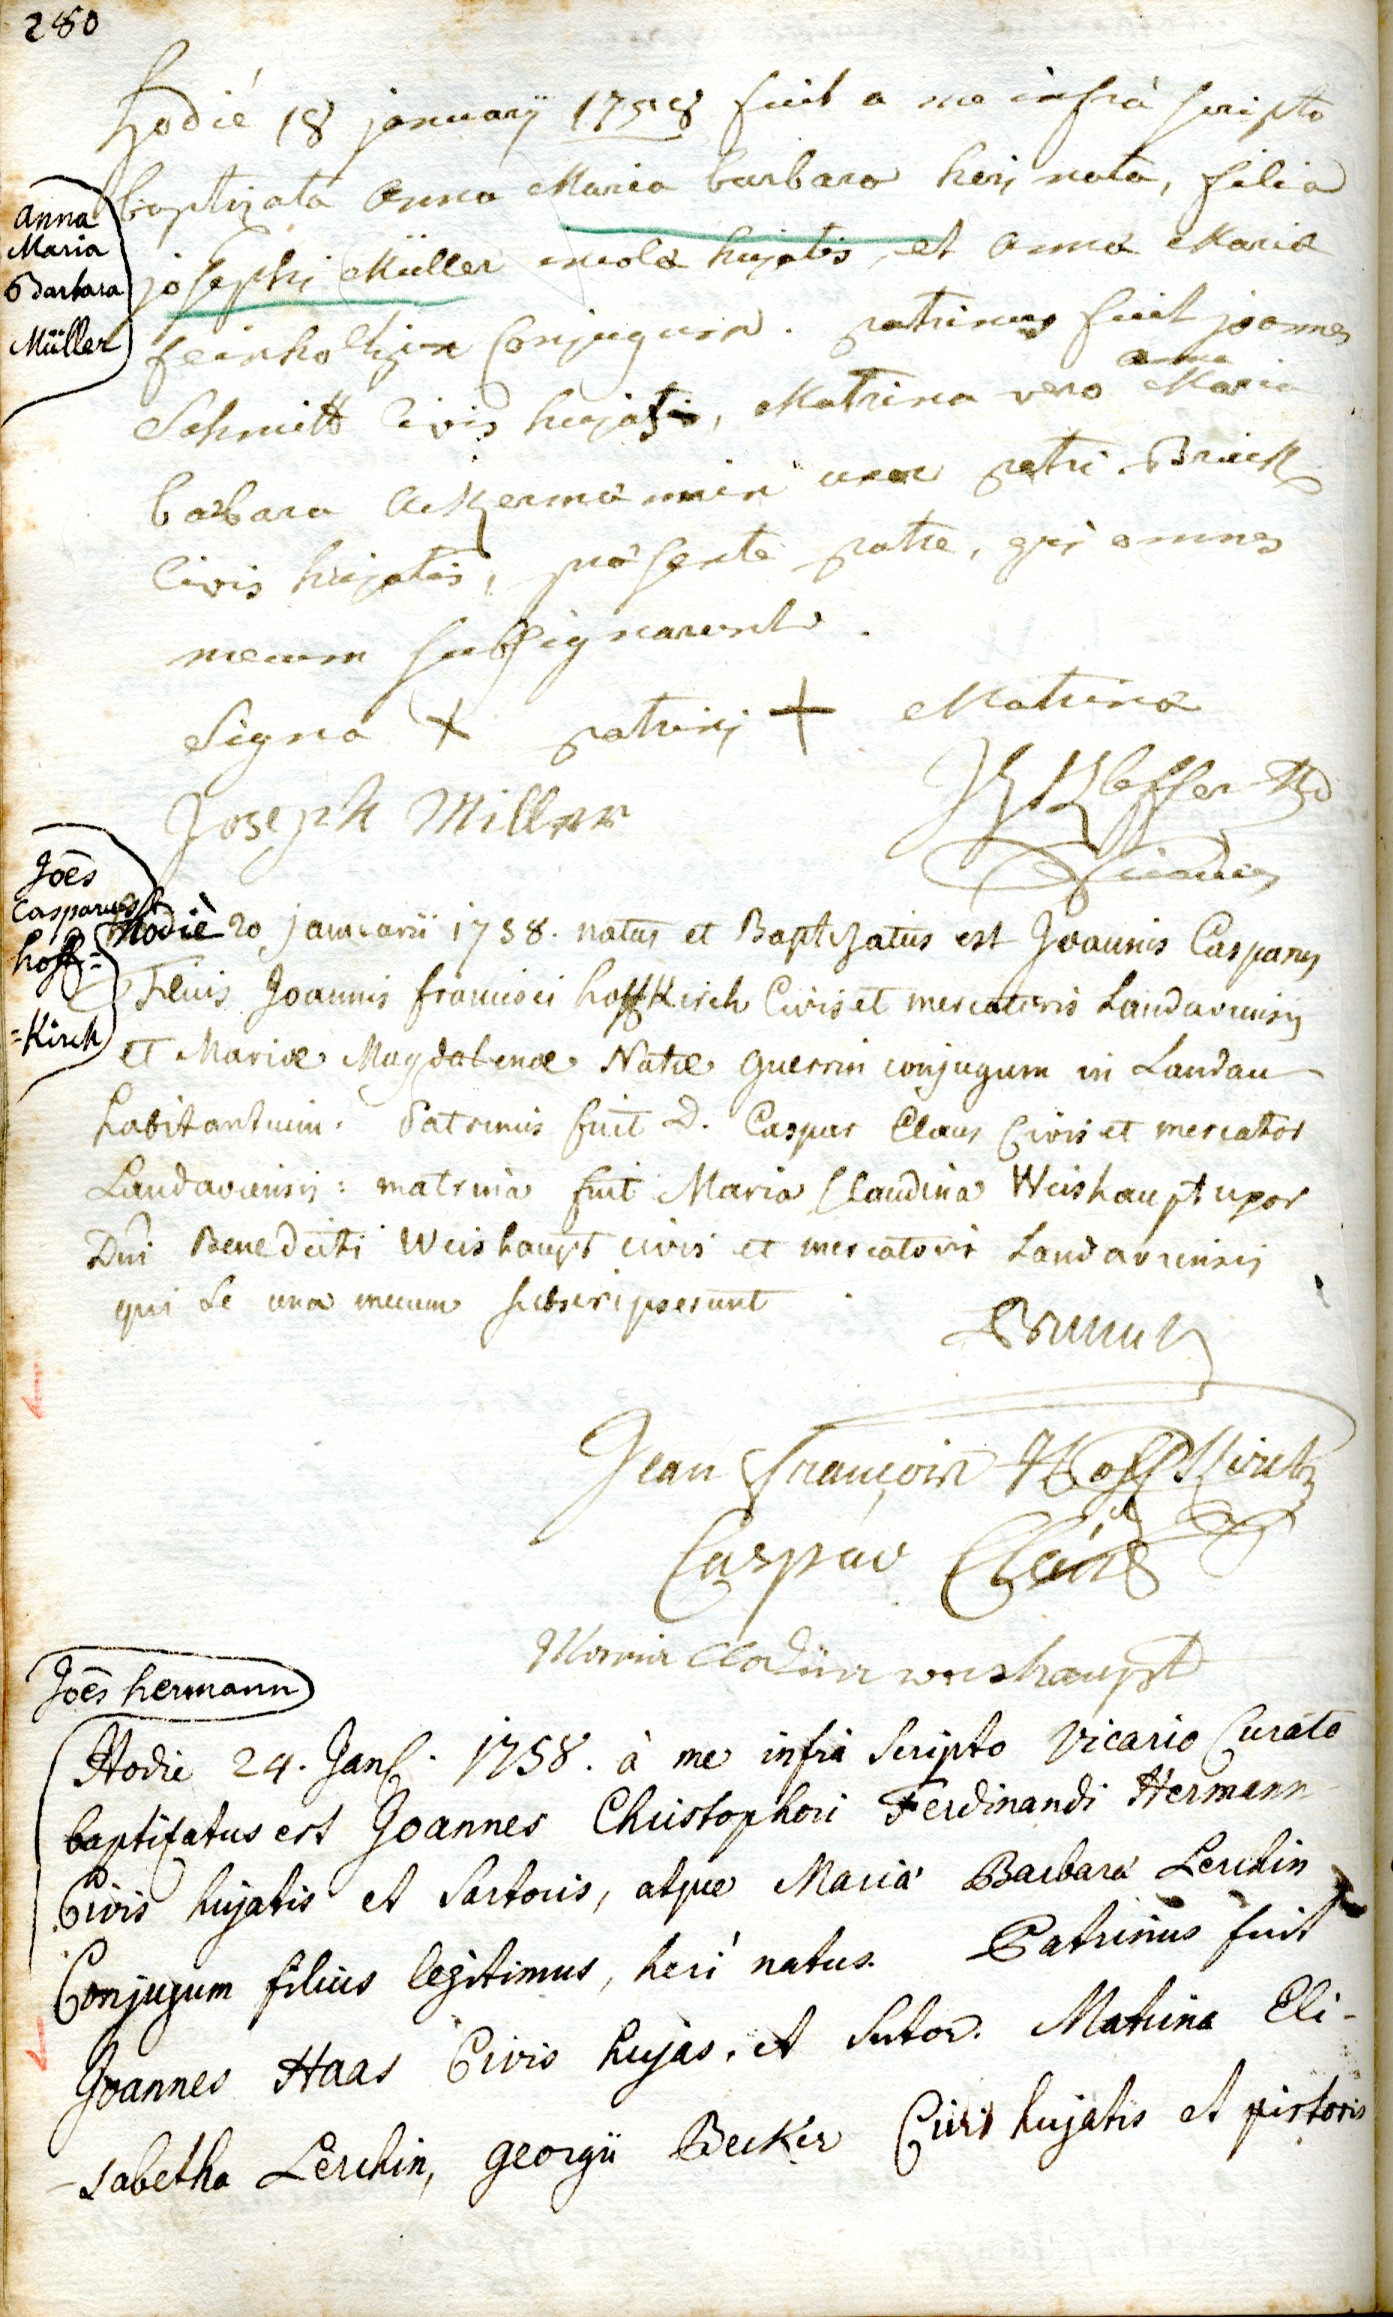 280
Hodié 18 januarÿ 1758 fuit a me infrà scripto
baptizata anna Maria barbara heri nata, filia
josephi Müller incolæ hujatis, et annæ Mariæ
feinholtzin Conjugum. patrinus fuit joannes
Schmitt Civis hujatis, Matrina vero anna Maria
barbara Ackermännin uxor petri Brück
Civis hujatis, præsente patre, qui omnes
mecum subsignarunt.
Signa + patrini + Matrinæ
Joseph Miller
anna
Maria
Barbara
Müller
Joēs
Casparus
hoff=
=Kirch
Hodiè 20 januarii 1758. natus et Baptizatus est Joannis Casparus
Filius Joannis francisci hoffKirch Civis et mercatoris Landaviensis
et Mariæ Magdalenæ Natæ Guerrin conjugum in Landau
habitantium. Patrinus fuit D. Caspar Claus Civis et mercator
Landaviensis: matrina fuit Maria Claudina Weishaupt uxor
Dni Benedicti Weishaupt civis et mercatoris Landaviensis
qui se una mecum subscripserunt.
Jean François HoffKirch
Caspar Claus
Maria Clodina weishaupt
Joēs hermann
Hodie 24. Jan. 1758. à me infrà Scripto Vicario Curato
baptizatus est Joannes Christophori Ferdinandi Hermann
Civis hujatis et Sartoris, atque Maria Barbara Lerchin
Conjugum filius legitimus, heri natus. Patrinus fuit
Joannes Haas Civis hujas, et Sutor. Matrina Eli-
-sabetha Lerchin, georgii Becker Civis hujatis et pistoris